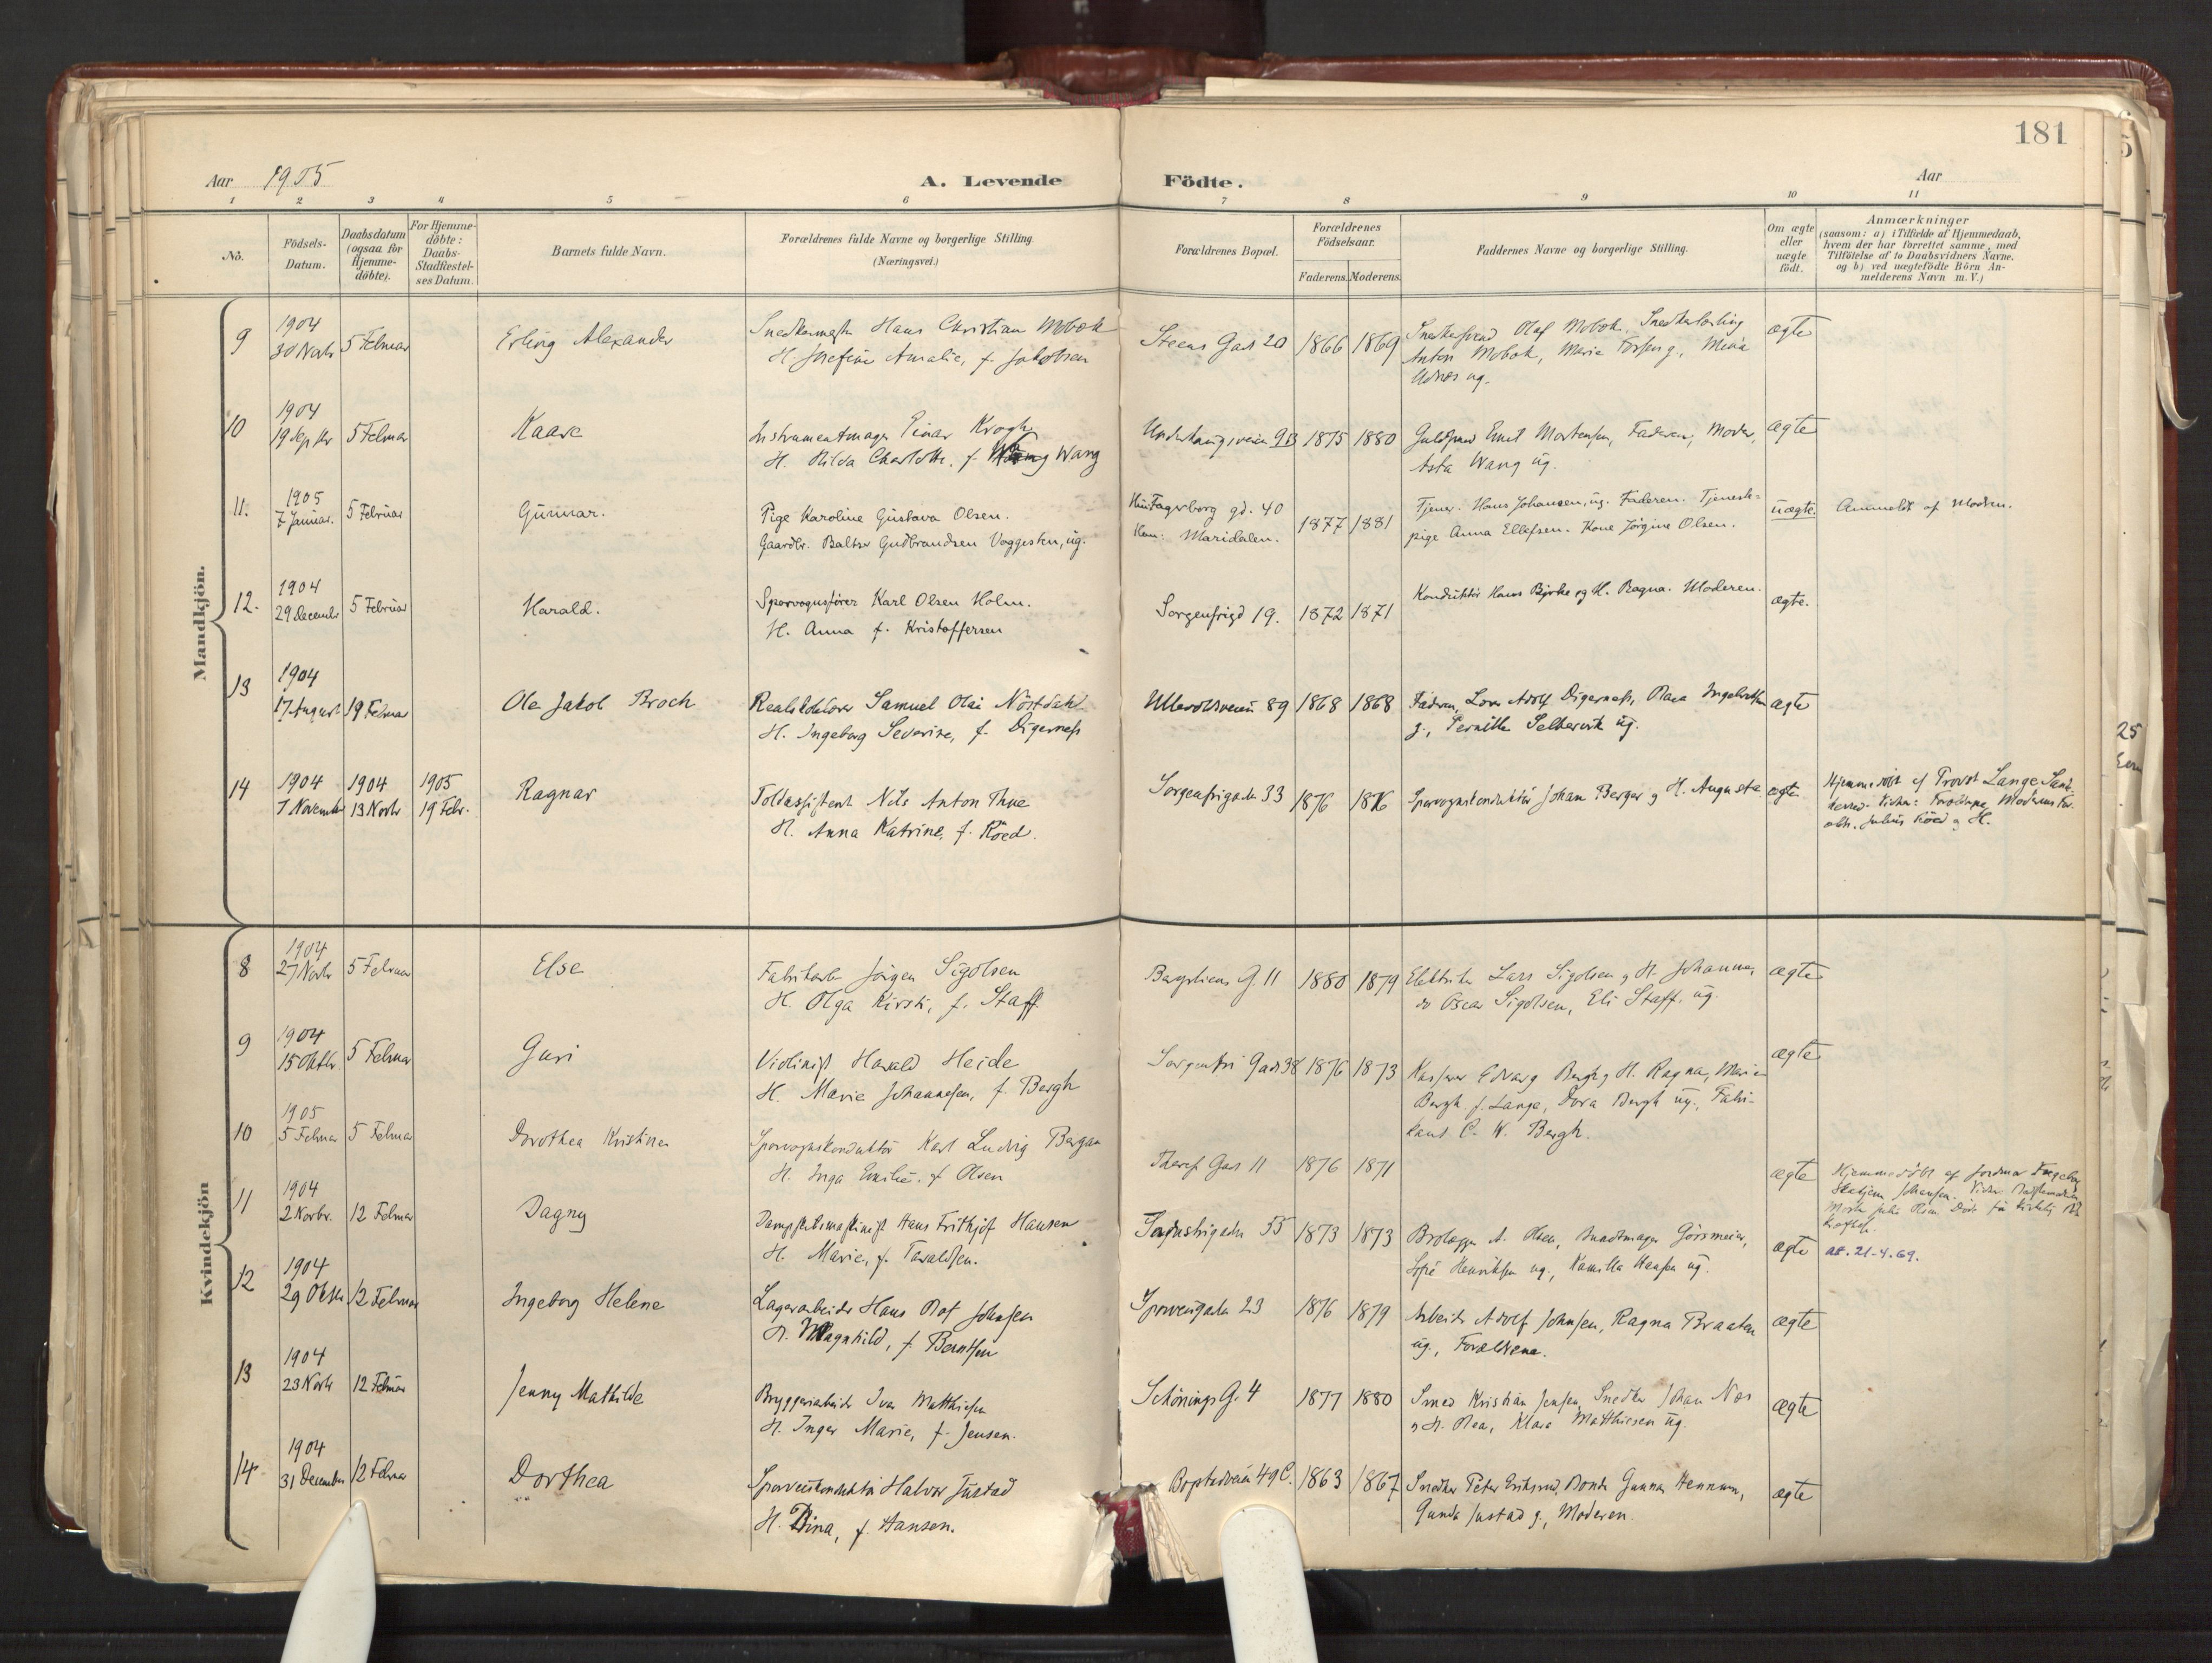 181
Aar 1905
A. Levende Födte.
Aar
1 2 3 4 5 6 7 8 9 10 11
No.
Födsels-
Datum.
Daabsdatum
(ogsaa for
Hjemme-
döbte).
For Hjemme-
döbte:
Daabs-
Stadfæstel-
ses Datum.
Barnets fulde Navn.
Forældrenes fulde Navne og borgerlige Stilling.
(Næringsvei.)
Forældrenes Bopæl.
Forældrenes
Födselsaar.
Faderens. Moderens.
Faddernes Navne og borgerlige Stilling.
Om ægte
eller
uægte
födt.
Anmærkninger
(saasom: a) i Tilfælde af Hjemmedaab,
hvem der har forrettet samme, med
Tilföielse af to Daabsvidners Navne.
og b) ved uægtefödte Börn An-
melderens Navn m. V.)
Mandkjön.
9
1904
30 Novbr 5 Februar
Erling Alexander
Snedkermester Hans Christian Mobæk
H. Josefine Amalie, f. Jakobsen
Steens Gad 20
1866 1869
Olaf Mobæk,
Anton Mobæk, Marie
ug.
ægte
10
1904
19 Septbr 5 Februar
Kaare
Instrumentmager Einar Krogh
H. Hilda Charlotte, f. Wang
Underhaugsveien 9B
1875 1880
Emil Mortensen, Faderen, Moder,
Asta Wang ug.
ægte
11.
1905
7 Januar. 5 Februar
Gunnar.
Pige Karoline Gustava Olsen.
Gaardbr. Baltser Gudbrandsen Vaggesten, ug.
Hun: Fagerborg gd. 40
Ham: Maridalen.
1877 1881
Tjener. Hans Johansen, ug. Faderen. Tjeneste-
pige Anna Ellefsen. Kone Jörgine Olsen.
uægte.
Anmeldt af Moderen.
12.
1904
29 December 5 Februar
Harald.
Sporvognsfører Karl Olsen Holm.
H. Anna f. Kristoffersen
Sorgenfrigd 19.
1872 1871
Konduktör Hans Bjerke og H. Ragna. Moderen.
ægte.
13
1904
17 August 19 Februar
Ole Jakob Broch
Samuel Olai Nöstdahl
H. Ingeborg Severine, f. Digernes
Ullevoldsveien 89
1868 1868
Faderen, Adolf Digernes,
g., Pernille Selkervik ug.
ægte
14
1904 1904 1905
7 November 13 Novbr 19 Febr.
Ragnar
Toldassistent Nils Anton Thue
H. Anna Katrine, f. Röed.
Sorgenfrigaden 33
1876 1876
Sporvognskonduktör Johan Berger og H. Augusta
ægte
Hjemmedöbt af Provst Lange
Forældrene, Moderens For-
ældr. Julius Röed og H.
Kvindekjön
8
1904
27 Novbr 5 Februar
Else
Fabrikarb. Jörgen Sigolsen
H. Olga Kirsti, f. Staff
Bergsliens G. 11
1880 1879
Elektriker Lars Sigolsen og H. Johanna,
do Oscar Sigolsen, Eli Staff. ug.
ægte
9
1904
15 Oktbr. 5 Februar
Guri
Violinist Harald Heide
H. Marie Johannesen, f. Bergh
Sorgenfri Gad 38
1876 1873
Kasserer Bergh og H. Ragna, Marie
Bergh f. Lange, Dora Bergh ug., Fabri-
kant C. W. Bergh.
ægte
10
1905
5 Februar 5 Februar
Dorothea Kristine
Sporvognskonduktör Karl Ludvig Bergan
H. Inga Emilie. f. Olsen
Theres Gad 11
1876 1871
ægte
Hjemmedöbt af Jordmor Ingeborg
Johansen.
11
1904
2 Novbr. 12 Februar
Dagny
Dampskibsmaskinist Hans Frithjof Hansen
H. Marie, f. Taraldsen.
Industrigaden 55
1873 1873
Brolægger A. Olsen, Buntmager Görsmeier,
Sofie Henriksen ug., Kamilla Hansen ug.
ægte
at. 21-4.69.
12
1904
29 Oktbr. 12 Februar
Ingeborg Helene
Lagerarbeider Hans Olaf Johnsen
H. Magnhild, f. Berntsen
Sporveisgaden 23
1876 1879
Arbeider Adolf Johnsen, Ragna Braaten
ug., Forældrene.
ægte
13
1904
23 Novbr 12 Februar
Jenny Mathilde
Bryggeriarbeider Ivar Matthiesen
H. Inger Marie, f. Jensen.
Schönings G. 4
1877 1880
Smed Kristian Jensen, Snedker Johan Næs
og H. Olea, Klara Matthiesen ug.
ægte
14
1904
31 December 12 Februar
Dorthea
Sporveiskonduktör Halvor Justad
H. Dina, f. Hansen.
Bogstadveien 49 C.
1863 1867
Snedker Peter Eriksrud, Bonde Gunnar Hennum,
Gunda Justad g., Moderen.
ægte
25